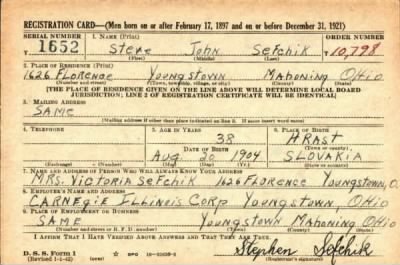 REGISTRATION CARD—(Men born on or after February 17, 1897 and on or before December 31, 1921)
SERIAL NUMBER 1. NAME (Print) ORDER NUMBER
1652 Steve John Sefchik 10,798
(First) (Middle) (Last)
2. PLACE OF RESIDENCE (Print)
1626 Florence Youngstown Mahoning Ohio
(Number and street) (Town, township, village, or city) (County) (State)
[THE PLACE OF RESIDENCE GIVEN ON THE LINE ABOVE WILL DETERMINE LOCAL BOARD
JURISDICTION; LINE 2 OF REGISTRATION CERTIFICATE WILL BE IDENTICAL]
3. MAILING ADDRESS
SAME
[Mailing address if other than place indicated on line 2. If same insert word same]
4. TELEPHONE 5. AGE IN YEARS 6. PLACE OF BIRTH
38 HRAST
DATE OF BIRTH (Town or county)
Aug 20 1904 SLOVAKIA
(Exchange) (Number) (Mo.) (Day) (Yr.) (State or country)
7. NAME AND ADDRESS OF PERSON WHO WILL ALWAYS KNOW YOUR ADDRESS
MRS. VICTORIA SEFCHIK 1626 FLORENCE YOUNGSTOWN, O.
8. EMPLOYER'S NAME AND ADDRESS
CARNEGIE ILLINOIS CORP YOUNGSTOWN, OHIO
9. PLACE OF EMPLOYMENT OR BUSINESS
SAME YOUNGSTOWN MAHONING OHIO
(Number and street or R. F. D. number) (Town) (County) (State)
I AFFIRM THAT I HAVE VERIFIED ABOVE ANSWERS AND THAT THEY ARE TRUE.
D. S. S. Form 1
(Revised 1-1-42) (over) GPO Stephen Sefchik